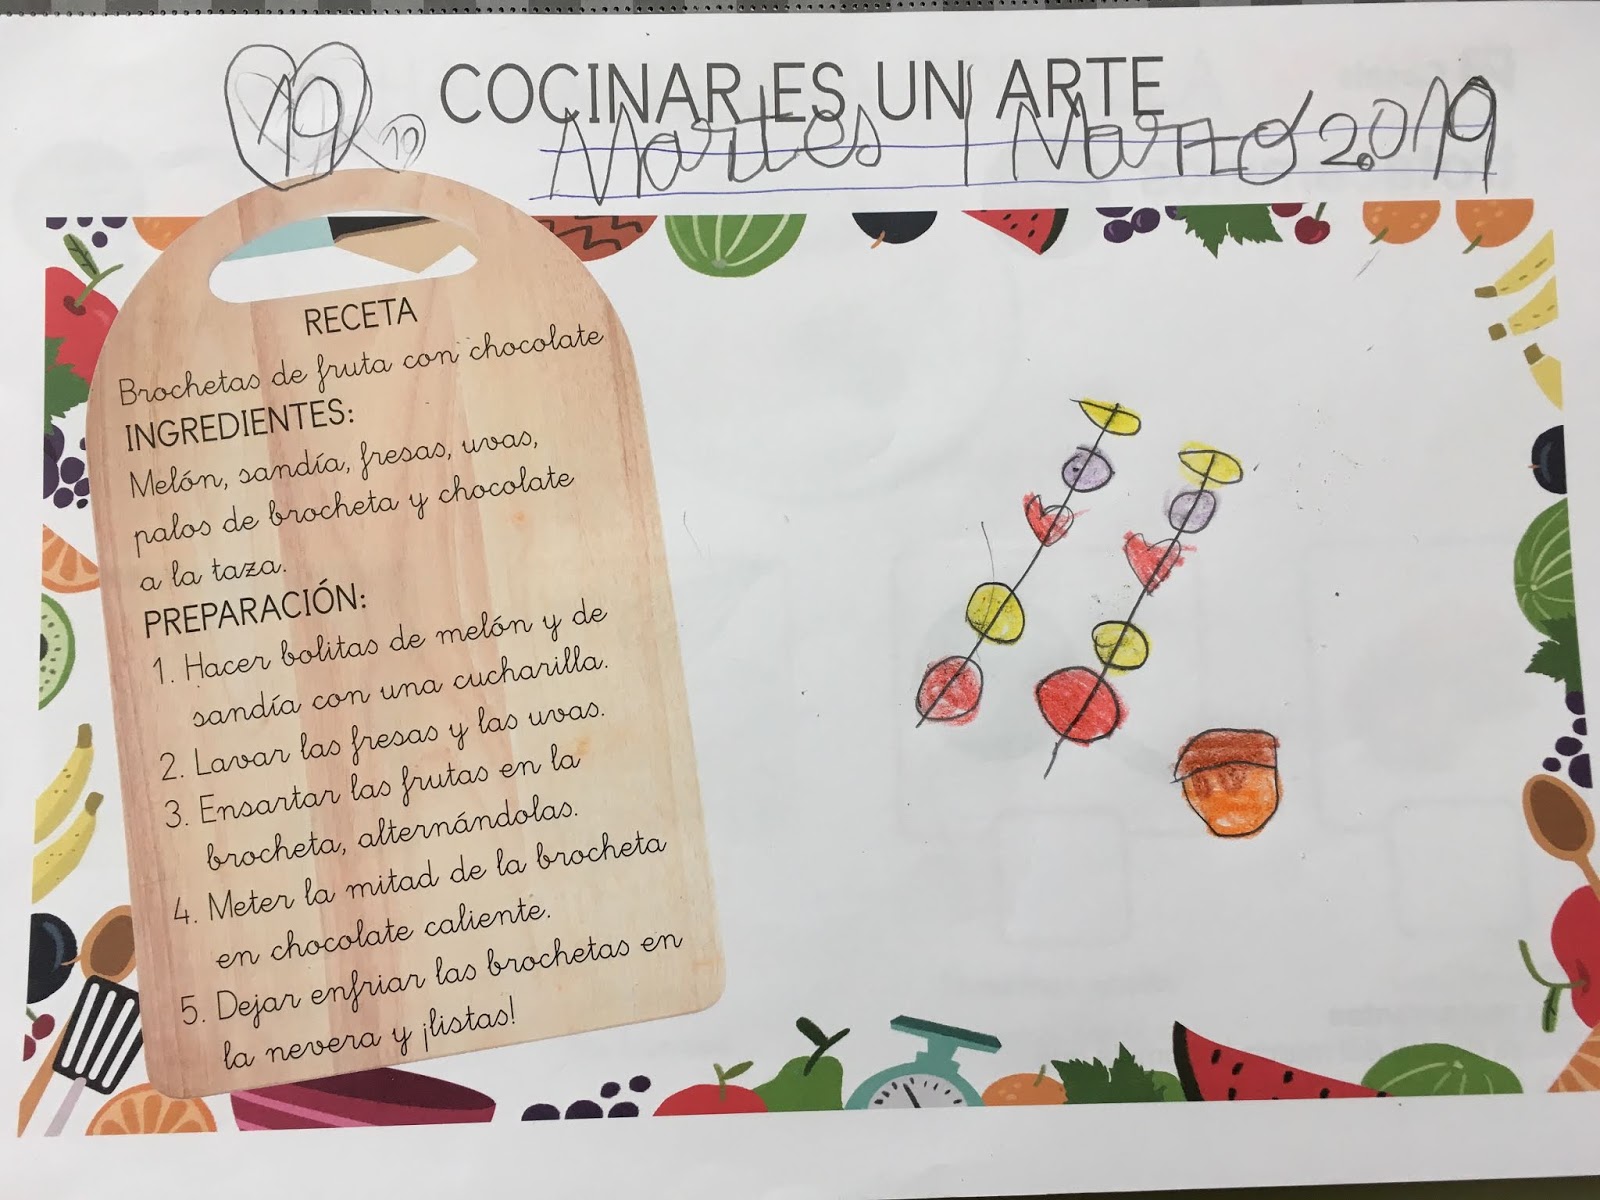 19
COCINAR ES UN ARTE
19
Martes | Marzo 2.019
RECETA
Brochetas de fruta con chocolate
INGREDIENTES:
Melón, sandía, fresas, uvas,
palos de brocheta y chocolate
a la taza.
PREPARACIÓN:
1. Hacer bolitas de melón y de
sandía con una cucharilla.
2. Lavar las fresas y las uvas.
3. Ensartar las frutas en la
brocheta, alternándolas.
4. Meter la mitad de la brocheta
en chocolate caliente.
5. Dejar enfriar las brochetas en
la nevera y ¡listas!